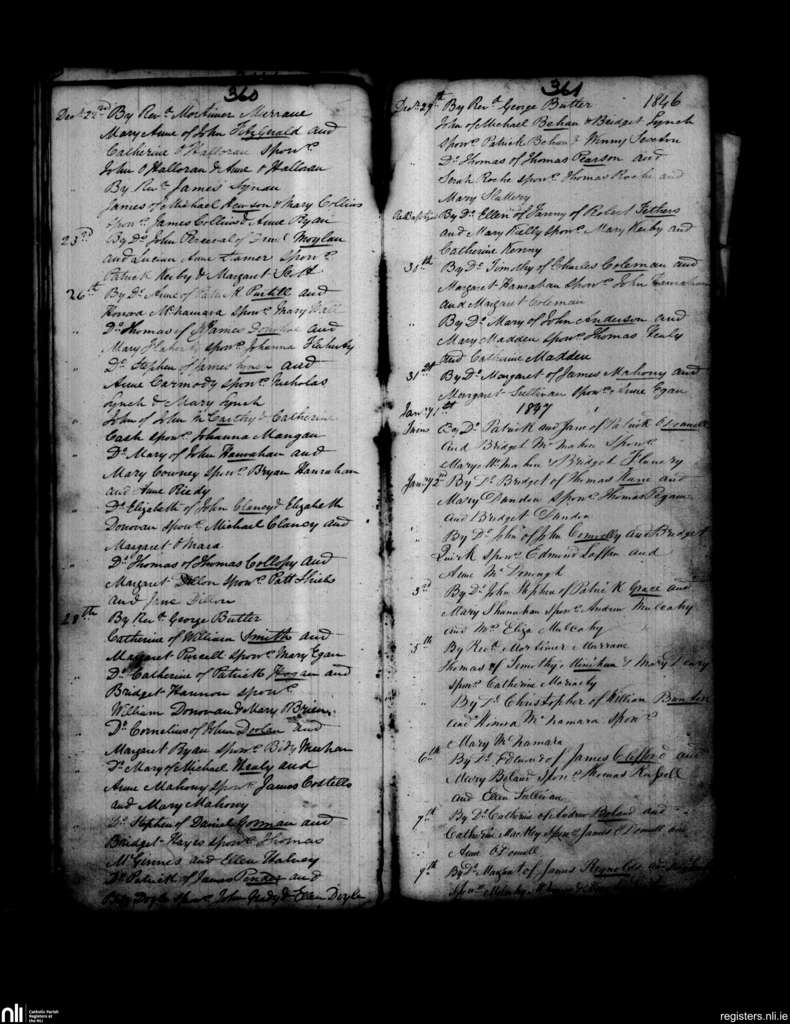 360
Decr. 22nd By Revd. Mortimer Merrane
Mary Anne of John FitzGerald and
Catherine O'Halloran Sponrs.
John O'Halloran & Anne O'Halloran
By Revd. James Synan
James of Michael Hewson & Mary Collins
Sponrs. James Collins & Anne Ryan
23rd By Do. John Perceval of Moylan
and Anne Sponrs.
Patrick Kirby & Margaret
26th By Do. Anne of Patrick Purtill and
Honora McNamara Sponrs. Mary Wall
" Do. Thomas of James Donohue and
Mary Flaherty Sponrs. Johanna Flaherty
" Do. Stephen of James and
Anne Carmody Sponrs. Nicholas
Lynch & Mary Lynch
John of John McCarthy & Catherine
Cash Sponrs. Johanna Mangan
" Do. Mary of John Hanrahan and
Mary Cowney Sponrs. Bryan Hanrahan
and Anne Reidy
" Do. Elizabeth of John Clancy & Elizabeth
Donovan Sponrs. Michael Clancy and
Margaret O'Mara
" Do. Thomas of Thomas Collopy and
Margaret Dillon Sponrs. Patt Shiels
and Jane Dillon
28th By Revd. George Butler
Catherine of William Smith and
Margaret Purcell Sponrs. Mary Egan
" Do. Catherine of Patrick Hogan and
Bridget Hannon Sponrs.
William Donovan & Mary O'Brien
Do. Cornelius of John Doolan and
Margaret Ryan Sponrs. Bidy Meehan
Do. Mary of Michael Healy and
Anne Mahony Sponrs. James Costello
and Mary Mahony
" Do. Stephen of Daniel Gorman and
Bridget Hayes Sponrs. Thomas
McGinnes and Ellen Halvey
Do. Patrick of James Pender and
Doyle Sponrs. John & Ellen Doyle
361
Decr. 29th By Revd. George Butler 1846
John of Michael Behan & Bridget Lynch
Sponrs. Patrick Behan & Winny Sexton
" Do. Thomas of Thomas Pearson and
Sarah Roche Sponrs. Thomas Roche and
Mary Slattery
By Do. Ellen of Fanny of Robert Fethers
and Mary Kielly Sponrs. Mary Kirby and
Catherine Kenny
By Do. Timothy of Charles Coleman and
Margaret Hanrahan Sponrs. John Hanrahan
and Margaret Coleman
" By Do. Mary of John Anderson and
Mary Madden Sponrs. Thomas Healy
and Catherine Madden
31st By Do. Margaret of James Mahony and
Margaret Sullivan Sponrs. Egan
Jany. 1st 1847
Twins By Do. Patrick and Jane of Patrick O'Donnell
and Bridget McMahon Sponrs.
Mary McMahon & Bridget Flanery
Jany. 2nd By Do. Bridget of Thomas Kane and
Mary Dundon Sponrs. Thomas
and Bridget Dundon
" By Do. John of John Connolly and Bridget
Quirk Sponrs. Edmund Laffan and
Anne McDonagh
3rd By Do. John Stephen of Patrick Grace and
Mary Shanahan Sponrs. Andrew Mulcahy
and Mrs. Eliza Mulcahy
5th By Revd. Mortimer Murrane
Thomas of Timothy Minihan & Mary
Sponrs. Catherine
" By Do. Christopher of William
and Honora McNamara Sponrs.
Mary McNamara
6th By Do. Edmund of James Clifford and
Mary Boland Sponrs. Thomas Russell
and Ellen Sullivan
7th By Do. Catherine of Andrew Boland and
Catherine Sponrs. James O'Donnell and
Anne O'Donnell
9th By Do. Margaret of James Reynolds and
Sponrs.
nli
Catholic Parish
Registers at
the NLI
registers.nli.ie